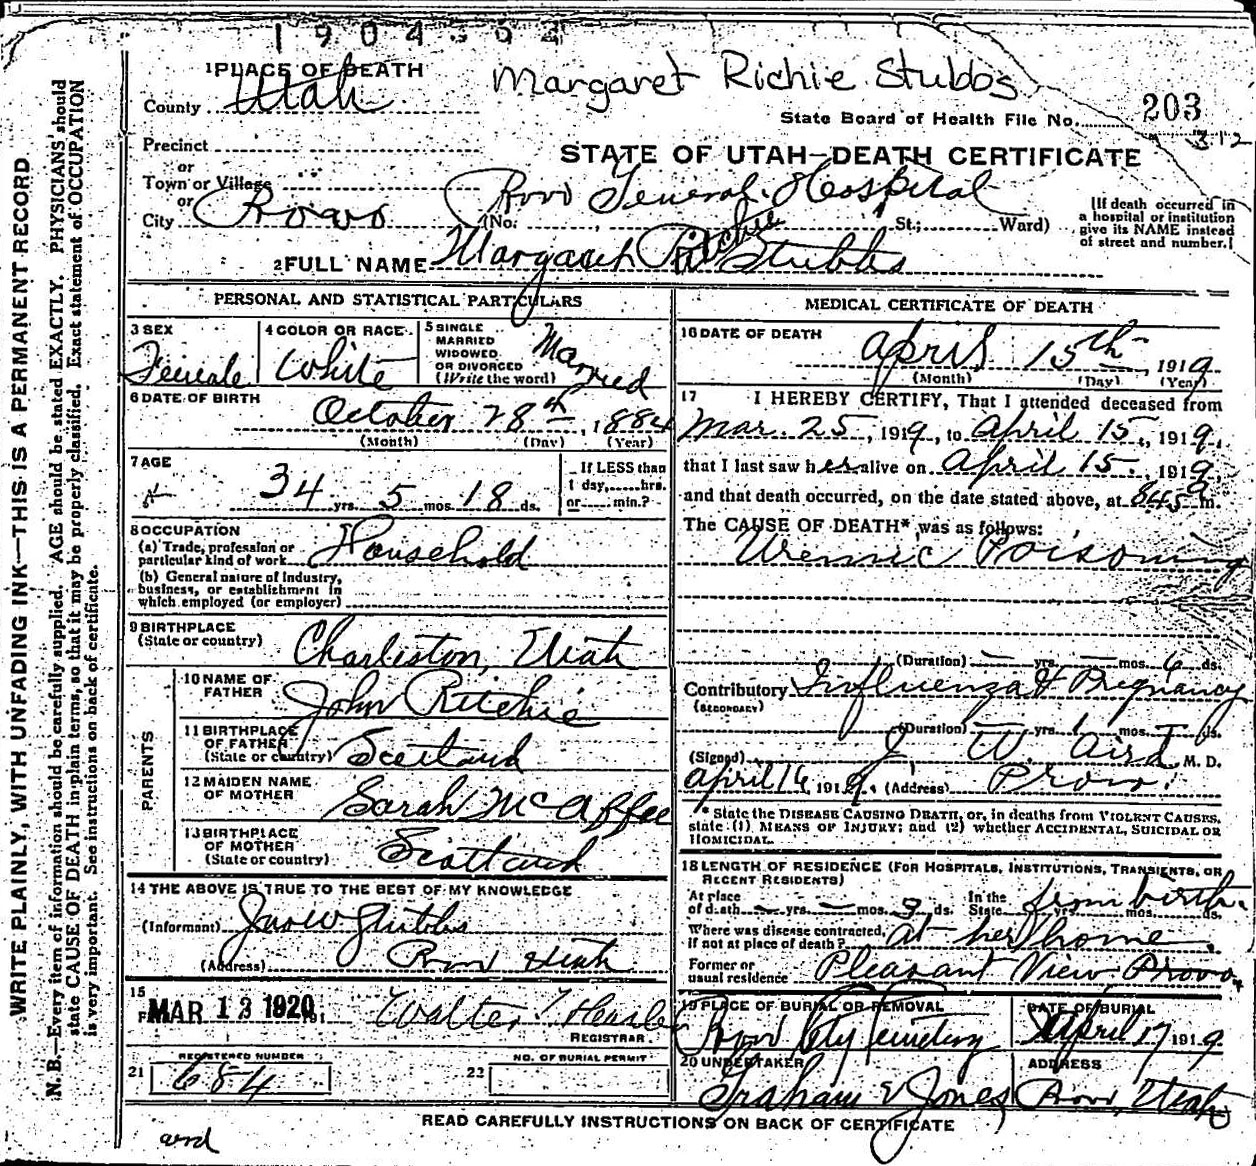 1904362
1 PLACE OF DEATH
Margaret Richie Stubbs
County Utah
State Board of Health File No. 203
312
Precinct
STATE OF UTAH—DEATH CERTIFICATE
or
Town or Village
or
City Provo (No. Provo General Hospital St.; Ward)
[If death occurred in
a hospital or institution
give its NAME instead
of street and number.]
2 FULL NAME Margaret Ritchie Stubbs
PERSONAL AND STATISTICAL PARTICULARS
3 SEX Female
4 COLOR OR RACE White
5 SINGLE
MARRIED
WIDOWED
OR DIVORCED
(Write the word) Married
6 DATE OF BIRTH
October 28th, 1884
(Month) (Day) (Year)
7 AGE
34 yrs. 5 mos. 18 ds.
If LESS than
1 day,......hrs.
or......min.?
8 OCCUPATION
(a) Trade, profession or
particular kind of work Household
(b) General nature of Industry,
business, or establishment in
which employed (or employer)
9 BIRTHPLACE
(State or country) Charleston, Utah
PARENTS
10 NAME OF
FATHER John Ritchie
11 BIRTHPLACE
OF FATHER
(State or country) Scotland
12 MAIDEN NAME
OF MOTHER Sarah McAffee
13 BIRTHPLACE
OF MOTHER
(State or country) Scotland
14 THE ABOVE IS TRUE TO THE BEST OF MY KNOWLEDGE
(Informant) Stubbs
(Address) Provo Utah
15
MAR 13 1920 191
Walter T. Hasler
REGISTRAR
REGISTERED NUMBER
21 684
NO. OF BURIAL PERMIT
22
MEDICAL CERTIFICATE OF DEATH
16 DATE OF DEATH
April 15th 1919
(Month) (Day) (Year)
17 I HEREBY CERTIFY, That I attended deceased from
Mar. 25, 1919, to April 15, 1919,
that I last saw her alive on April 15, 1919,
and that death occurred, on the date stated above, at 845 m.
The CAUSE OF DEATH* was as follows:
Uremic Poisoning
(Duration) yrs. mos. 6 ds.
Contributory Influenza & Pregnancy
(SECONDARY)
(Duration) yrs. 1 mos. ds.
(Signed) J. W. Aird M. D.
April 16, 1919. (Address) Provo.
* State the DISEASE CAUSING DEATH, or, in deaths from VIOLENT CAUSES,
state (1) MEANS OF INJURY; and (2) whether ACCIDENTAL, SUICIDAL OR
HOMICIDAL.
18 LENGTH OF RESIDENCE (FOR HOSPITALS, INSTITUTIONS, TRANSIENTS, OR
RECENT RESIDENTS)
At place
of death yrs. mos. 9 ds.
In the
State from birth yrs. mos. ds.
Where was disease contracted,
if not at place of death? at her home.
Former or
usual residence Pleasant View Provo.
19 PLACE OF BURIAL OR REMOVAL
Provo City Cemetery
DATE OF BURIAL
April 17 1919
20 UNDERTAKER
Graham & Jones
ADDRESS
Provo, Utah
READ CAREFULLY INSTRUCTIONS ON BACK OF CERTIFICATE
WRITE PLAINLY, WITH UNFADING INK—THIS IS A PERMANENT RECORD
N. B.—Every item of information should be carefully supplied. AGE should be stated EXACTLY. PHYSICIANS should
state CAUSE OF DEATH in plain terms, so that it may be properly classified. Exact statement of OCCUPATION
is very important. See instructions on back of certificate.